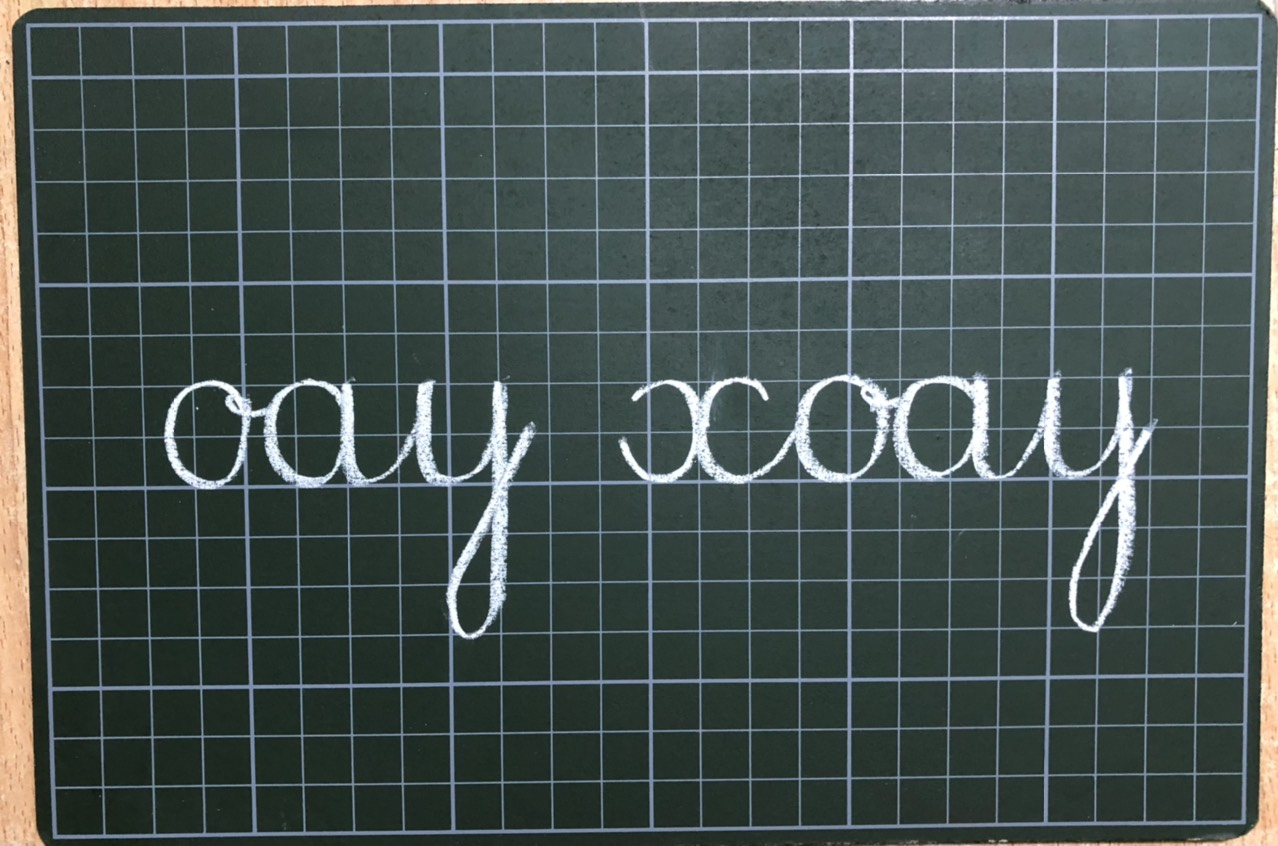 oay xoay